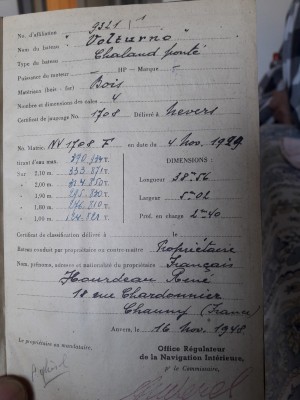 N° d'affiliation 9321
Nom du bateau "Volturno"
Type du bateau Chaland ponté
Puissance du moteur — HP — Marque —
Matériaux (bois - fer) Bois
Nombre et dimensions des cales 4
Certificat de jaugeage N° 1708 Délivré à Nevers
No. Matric. NV 1708 F en date du 4 Nov. 1929
tirant d'eau max.
DIMENSIONS :
Sur 2,10 m.
" 2,00 m.
Longueur 38=56
" 1,90 m.
Largeur 5=02
" 1,80 m.
Prof. en charge 2=40
" 1,00 m.
Certificat de classification délivré à
Bateau conduit par propriétaire ou contre-maître Propriétaire
Nom, prénoms, adresse et nationalité du propriétaire Français
Hourdeau René
18 rue Chardonnier
Chauny (France)
Anvers, le 16 nov. 1948
Le propriétaire ou mandataire,
Office Régulateur
de la Navigation Intérieure,
Le Commissaire,